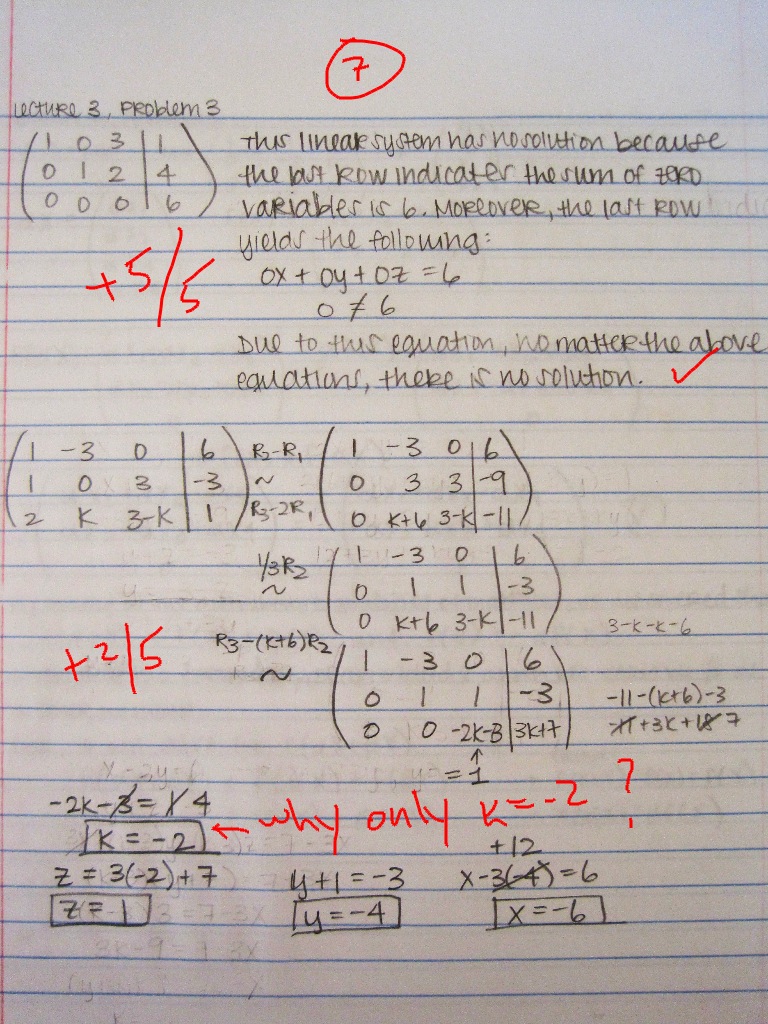 7
Lecture 3, Problem 3
1 0 3 | 1 This linear system has no solution because
0 1 2 | 4 the last row indicates the sum of zero
0 0 0 | 6 variables is 6. Moreover, the last row
yields the following:
+5/5 0x + 0y + 0z = 6
0 ≠ 6
Due to this equation, no matter the above
equations, there is no solution. ✓
1 -3 0 | 6 R2-R1 1 -3 0 | 6
1 0 3 | -3 ~ 0 3 3 | -9
2 K 3-K | 1 R3-2R1 0 K+6 3-K | -11
1/3R2 1 -3 0 | 6
~ 0 1 1 | -3
0 K+6 3-K | -11 3-K-K-6
+2/5 R3-(K+6)R2 1 -3 0 | 6
~ 0 1 1 | -3 -11-(K+6)-3
0 0 -2K-3 | 3K+7 -11+3K+18 7
↑
= 1
-2K-3 = 1 4
K = -2 ← why only K = -2 ?
+12
z = 3(-2)+7 y+1 = -3 x-3(-4) = 6
z = 1 y = -4 x = -6